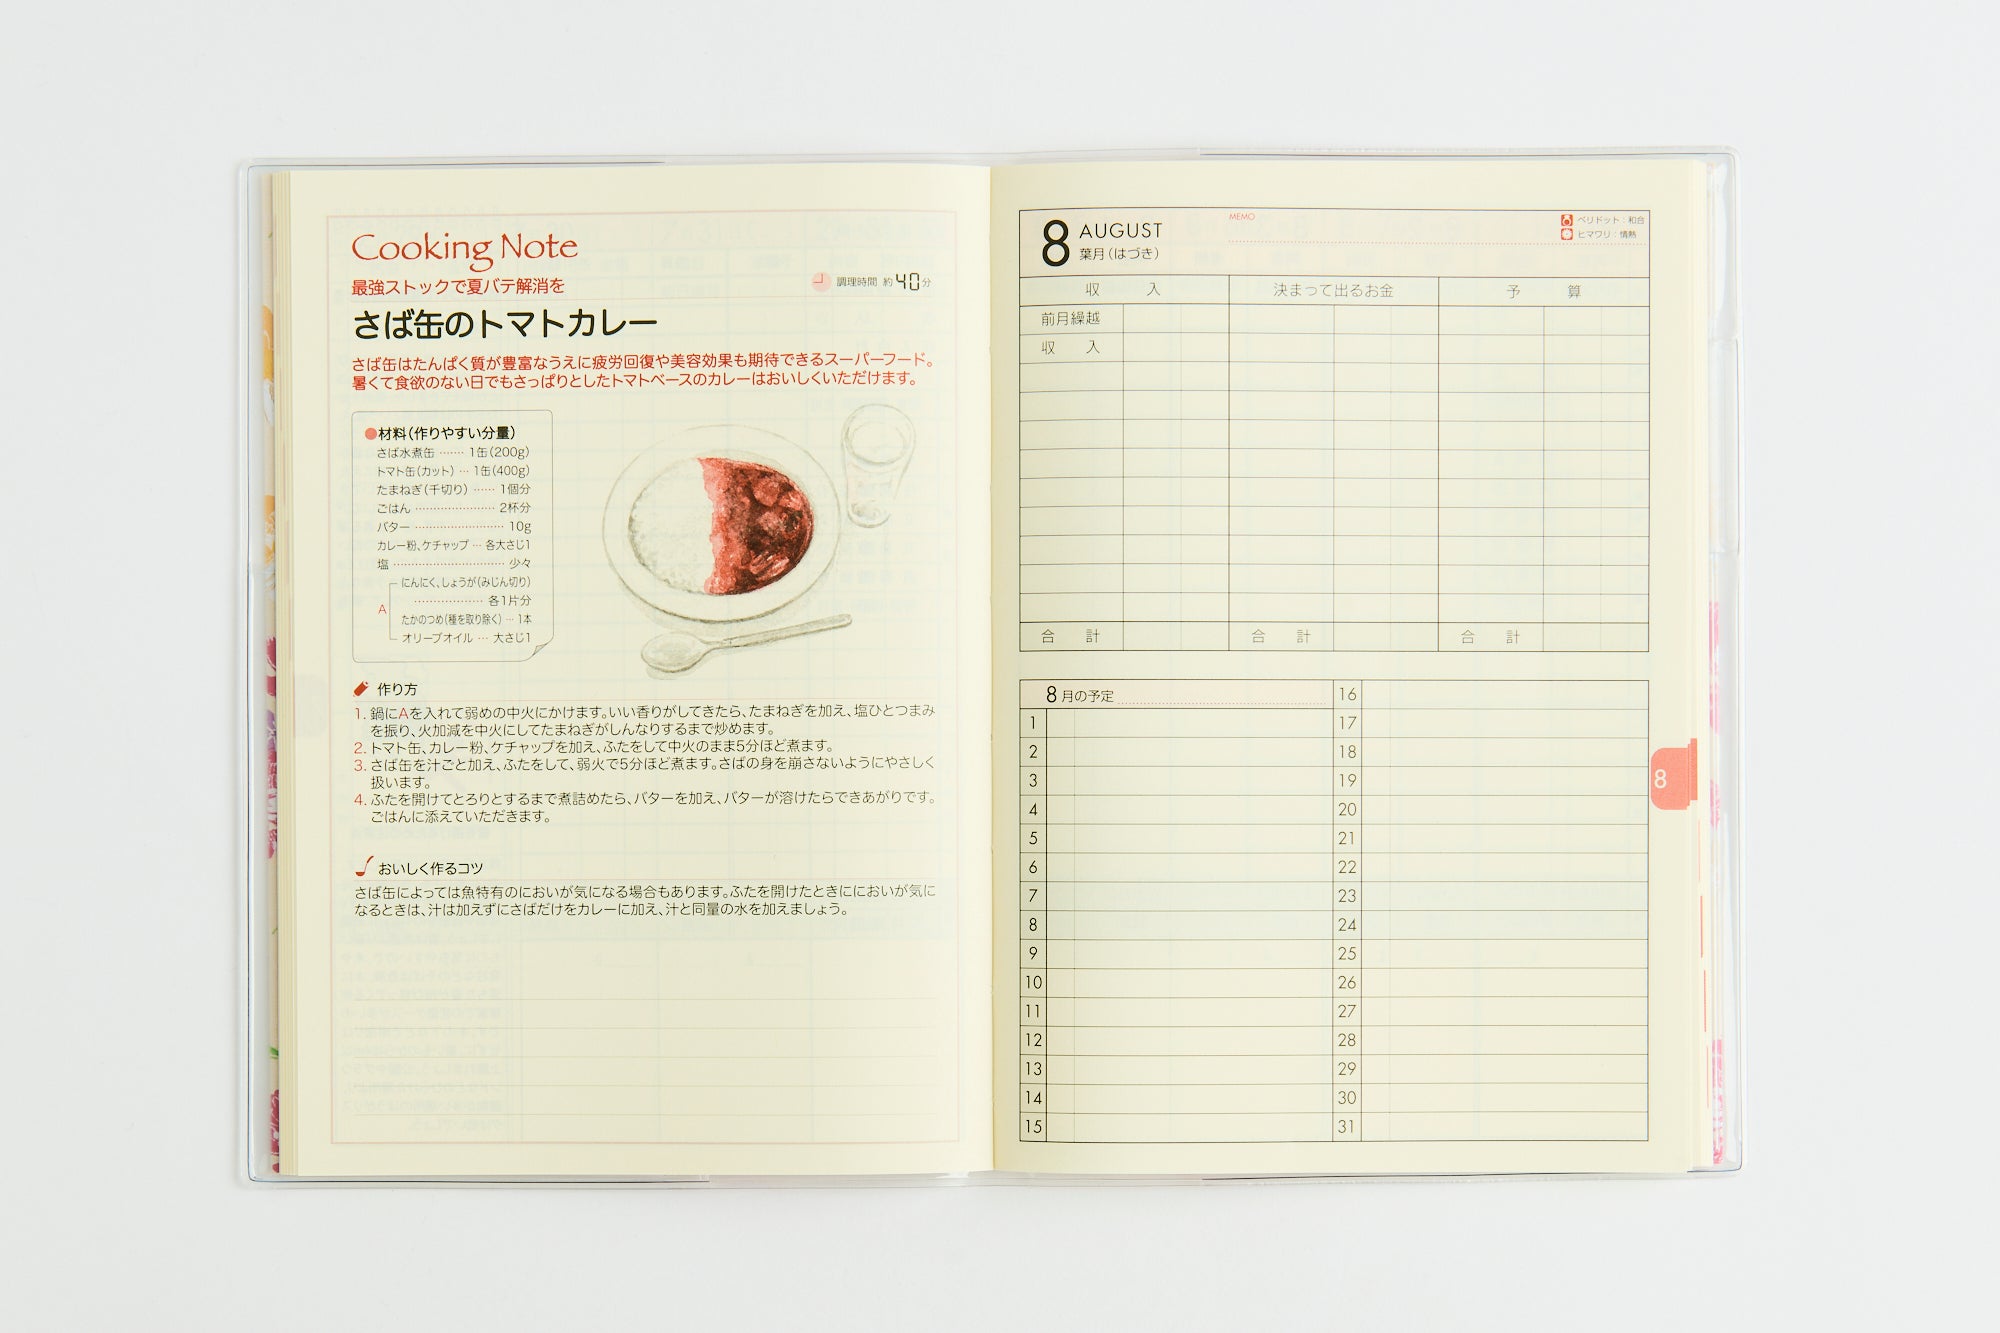 Cooking Note
最強ストックで夏バテ解消を
調理時間 約40分
さば缶のトマトカレー
さば缶はたんぱく質が豊富なうえに疲労回復や美容効果も期待できるスーパーフード。
暑くて食欲のない日でもさっぱりとしたトマトベースのカレーはおいしくいただけます。
●材料(作りやすい分量)
さば水煮缶 ······· 1缶(200g)
トマト缶(カット) ··· 1缶(400g)
たまねぎ(千切り) ······ 1個分
ごはん ······················ 2杯分
バター ························ 10g
カレー粉、ケチャップ ··· 各大さじ1
塩 ······························ 少々
A
にんにく、しょうが(みじん切り)
··················· 各1片分
たかのつめ(種を取り除く) ··· 1本
オリーブオイル ··· 大さじ1
作り方
1. 鍋にAを入れて弱めの中火にかけます。いい香りがしてきたら、たまねぎを加え、塩ひとつまみ
を振り、火加減を中火にしてたまねぎがしんなりするまで炒めます。
2. トマト缶、カレー粉、ケチャップを加え、ふたをして中火のまま5分ほど煮ます。
3. さば缶を汁ごと加え、ふたをして、弱火で5分ほど煮ます。さばの身を崩さないようにやさしく
扱います。
4. ふたを開けてとろりとするまで煮詰めたら、バターを加え、バターが溶けたらできあがりです。
ごはんに添えていただきます。
おいしく作るコツ
さば缶によっては魚特有のにおいが気になる場合もあります。ふたを開けたときににおいが気に
なるときは、汁は加えずにさばだけをカレーに加え、汁と同量の水を加えましょう。
8 AUGUST
葉月(はづき)
MEMO
ペリドット:和合
ヒマワリ:情熱
収 入 決まって出るお金 予 算
前月繰越
収 入
合 計 合 計 合 計
8月の予定 16
1 17
2 18
3 19
4 20
5 21
6 22
7 23
8 24
9 25
10 26
11 27
12 28
13 29
14 30
15 31
8